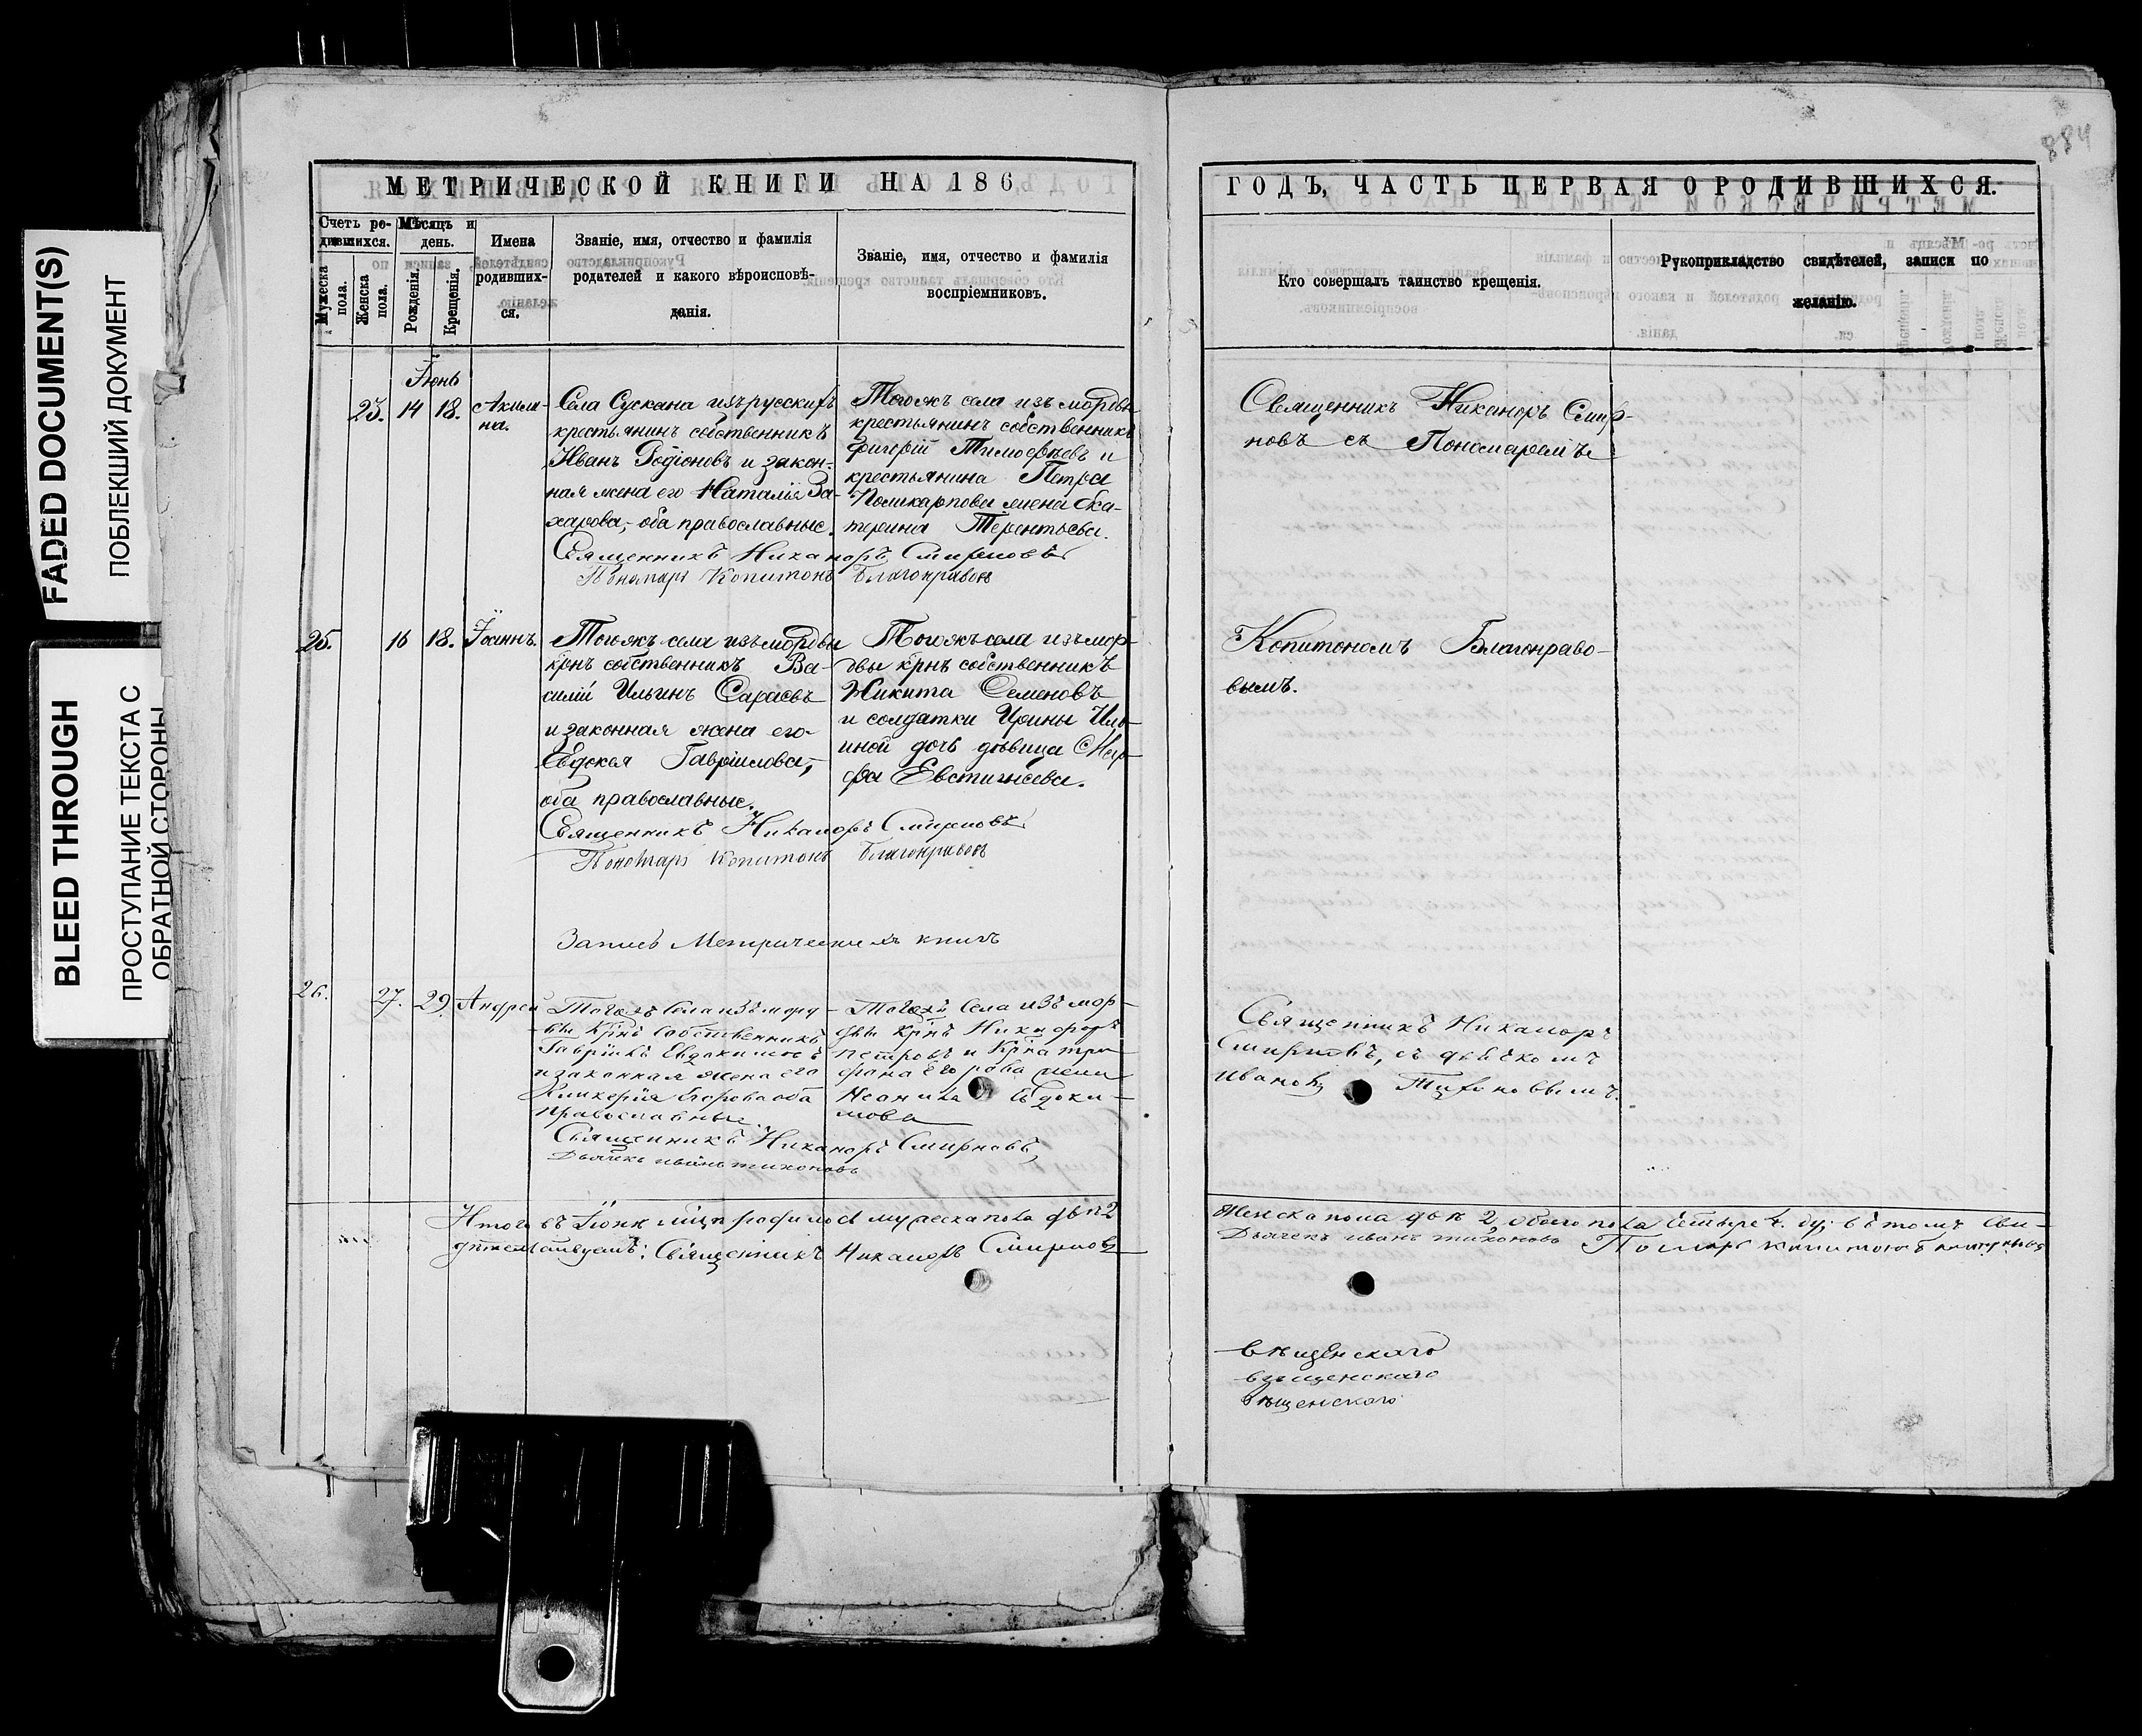 FADED DOCUMENT(S)
ПОБЛЕКШИЙ ДОКУМЕНТ
BLEED THROUGH
ПРОСТУПАНИЕ ТЕКСТА С
ОБРАТНОЙ СТОРОНЫ
884
МЕТРИЧЕСКОЙ КНИГИ НА 186
Счетъ ро-
дившихся.
Мѣсяцъ и
день.
Мужеска
пола.
Женска
пола.
Рожденія.
Крещенія.
Имена
родивших-
ся.
Званіе, имя, отчество и фамилія
родителей и какого вѣроисповѣ-
данія.
Званіе, имя, отчество и фамилія
воспріемниковъ.
Іюнь
23. 14 18. Акили-
на.
Села Сускана изъ русскихъ
крестьянинъ собственникъ
Иванъ Родіоновъ и закон-
ная жена его Наталія За-
харова, оба православные.
Тогожъ села изъ мордвы
крестьянинъ собственникъ
Григорій Тимофѣевъ и
крестьянина Петра
Поликарпова жена Ека-
терина Терентьева.
Священникъ Никаноръ Смирновъ
Пономарь Копитонъ Благонравовъ
25. 16 18. Іоаннъ.
Тогожъ села изъ мордвы
крнъ собственникъ Ва-
силій Ильинъ Сараевъ
и законная жена его
Евдокія Гавріилова,
оба православные.
Тогожъ села изъ мор-
двы крнъ собственникъ
Никита Семеновъ
и солдатки Ирины Иль-
иной дочь дѣвица Мар-
фа Евстигнеева.
Священникъ Никаноръ Смирновъ
Пономарь Копитонъ Благонравовъ
Запись Метрическихъ книгъ
26. 27. 29. Андрей
Тогожъ Села изъ морд-
вы Крнъ Собственникъ
Гавріилъ Евдокимовъ
и законная жена его
Гликерія Егорова оба
православные
Тогожъ Села изъ мор-
двы Крнъ Никифоръ
Петровъ и Крна Три-
фона Егорова жена
Евдоки-
мова
Священникъ Никаноръ Смирновъ
Дьячекъ Иванъ Тихоновъ
Итого въ Іюнѣ мцѣ родилось мужеска пола два 2
Священникъ Никаноръ Смирновъ
ГОДЪ, ЧАСТЬ ПЕРВАЯ О РОДИВШИХСЯ.
Кто совершалъ таинство крещенія.
Рукоприкладство свидѣтелей, записи по
желанію.
Священникъ Никаноръ Смир-
новъ съ Пономаремъ
Копитономъ Благонраво-
вымъ.
Священникъ Никаноръ
Смирновъ, съ дьячкомъ
Иваномъ Тихоновымъ.
Женска пола два 2, обоего пола четыре 4. въ томъ Сви-
Дьячекъ Иванъ Тихоновъ Пономарь Копитонъ
вѣщенскаго
вѣщенскаго
вѣщенскаго